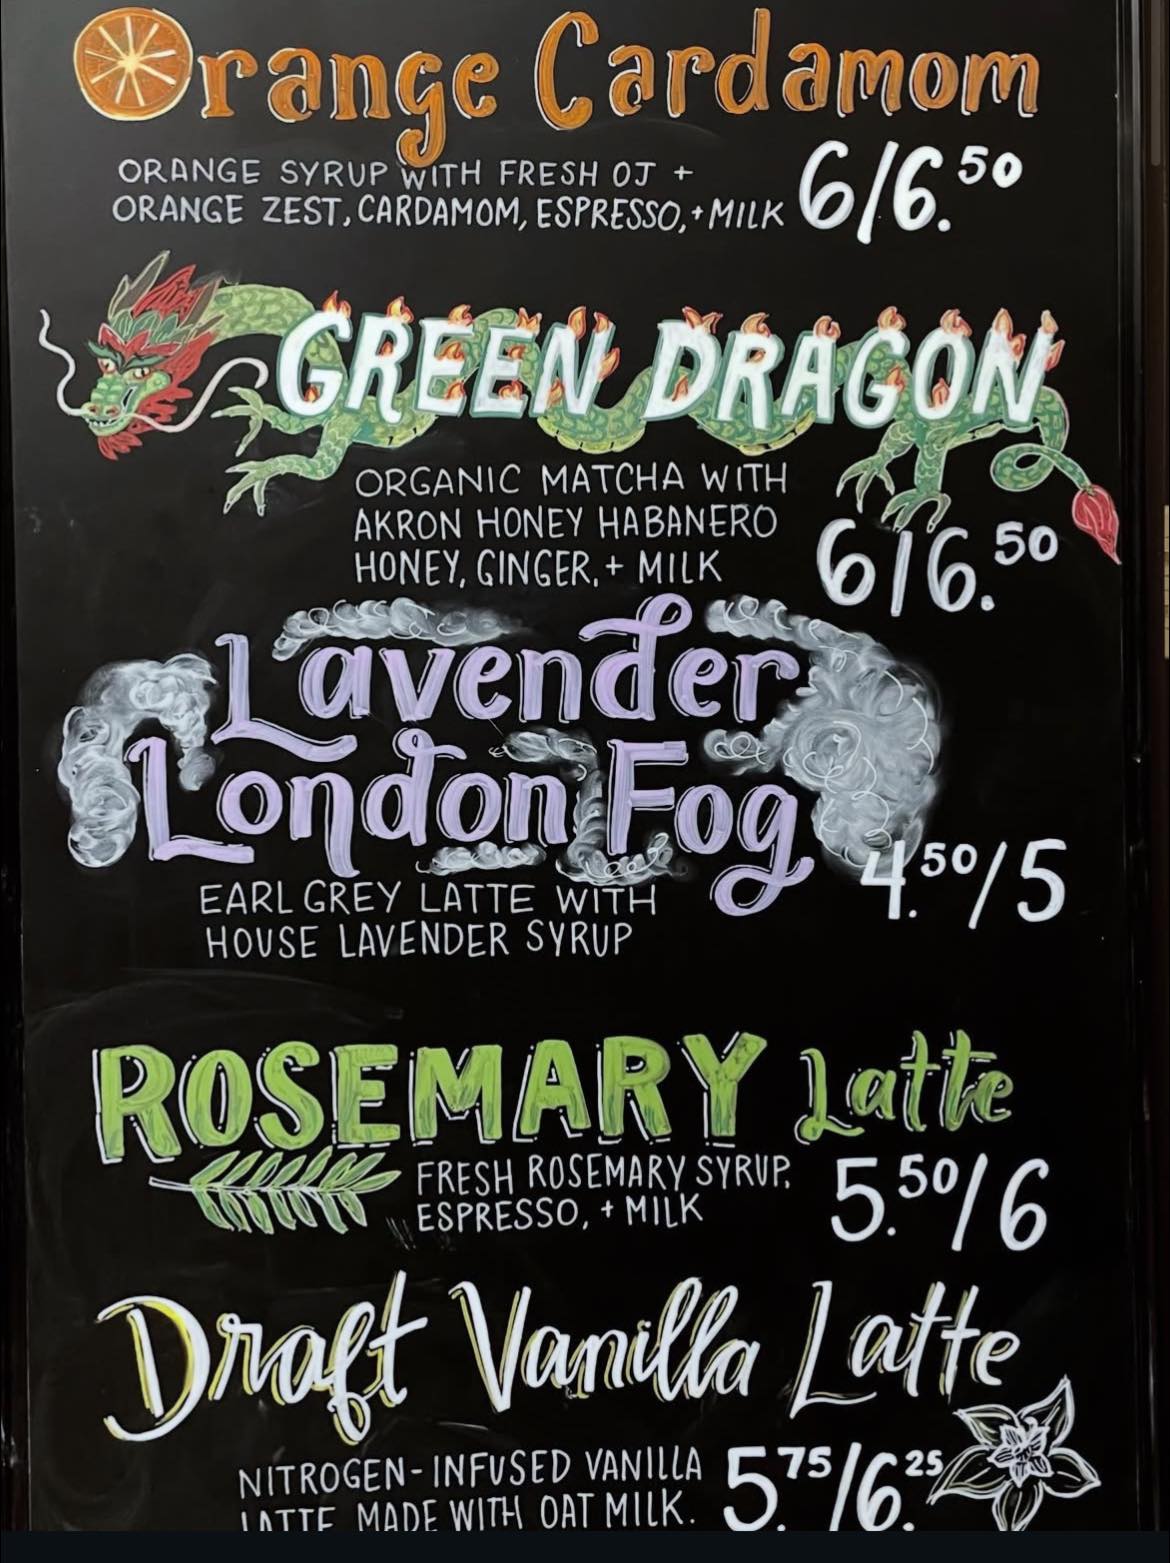 Orange Cardamom
ORANGE SYRUP WITH FRESH OJ +
ORANGE ZEST, CARDAMOM, ESPRESSO, + MILK 6/6.50
GREEN DRAGON
ORGANIC MATCHA WITH
AKRON HONEY HABANERO
HONEY, GINGER, + MILK 6/6.50
Lavender
London Fog
4.50/5
EARL GREY LATTE WITH
HOUSE LAVENDER SYRUP
ROSEMARY Latte
FRESH ROSEMARY SYRUP,
ESPRESSO, + MILK 5.50/6
Draft Vanilla Latte
NITROGEN-INFUSED VANILLA 5.75/6.25
LATTE MADE WITH OAT MILK.